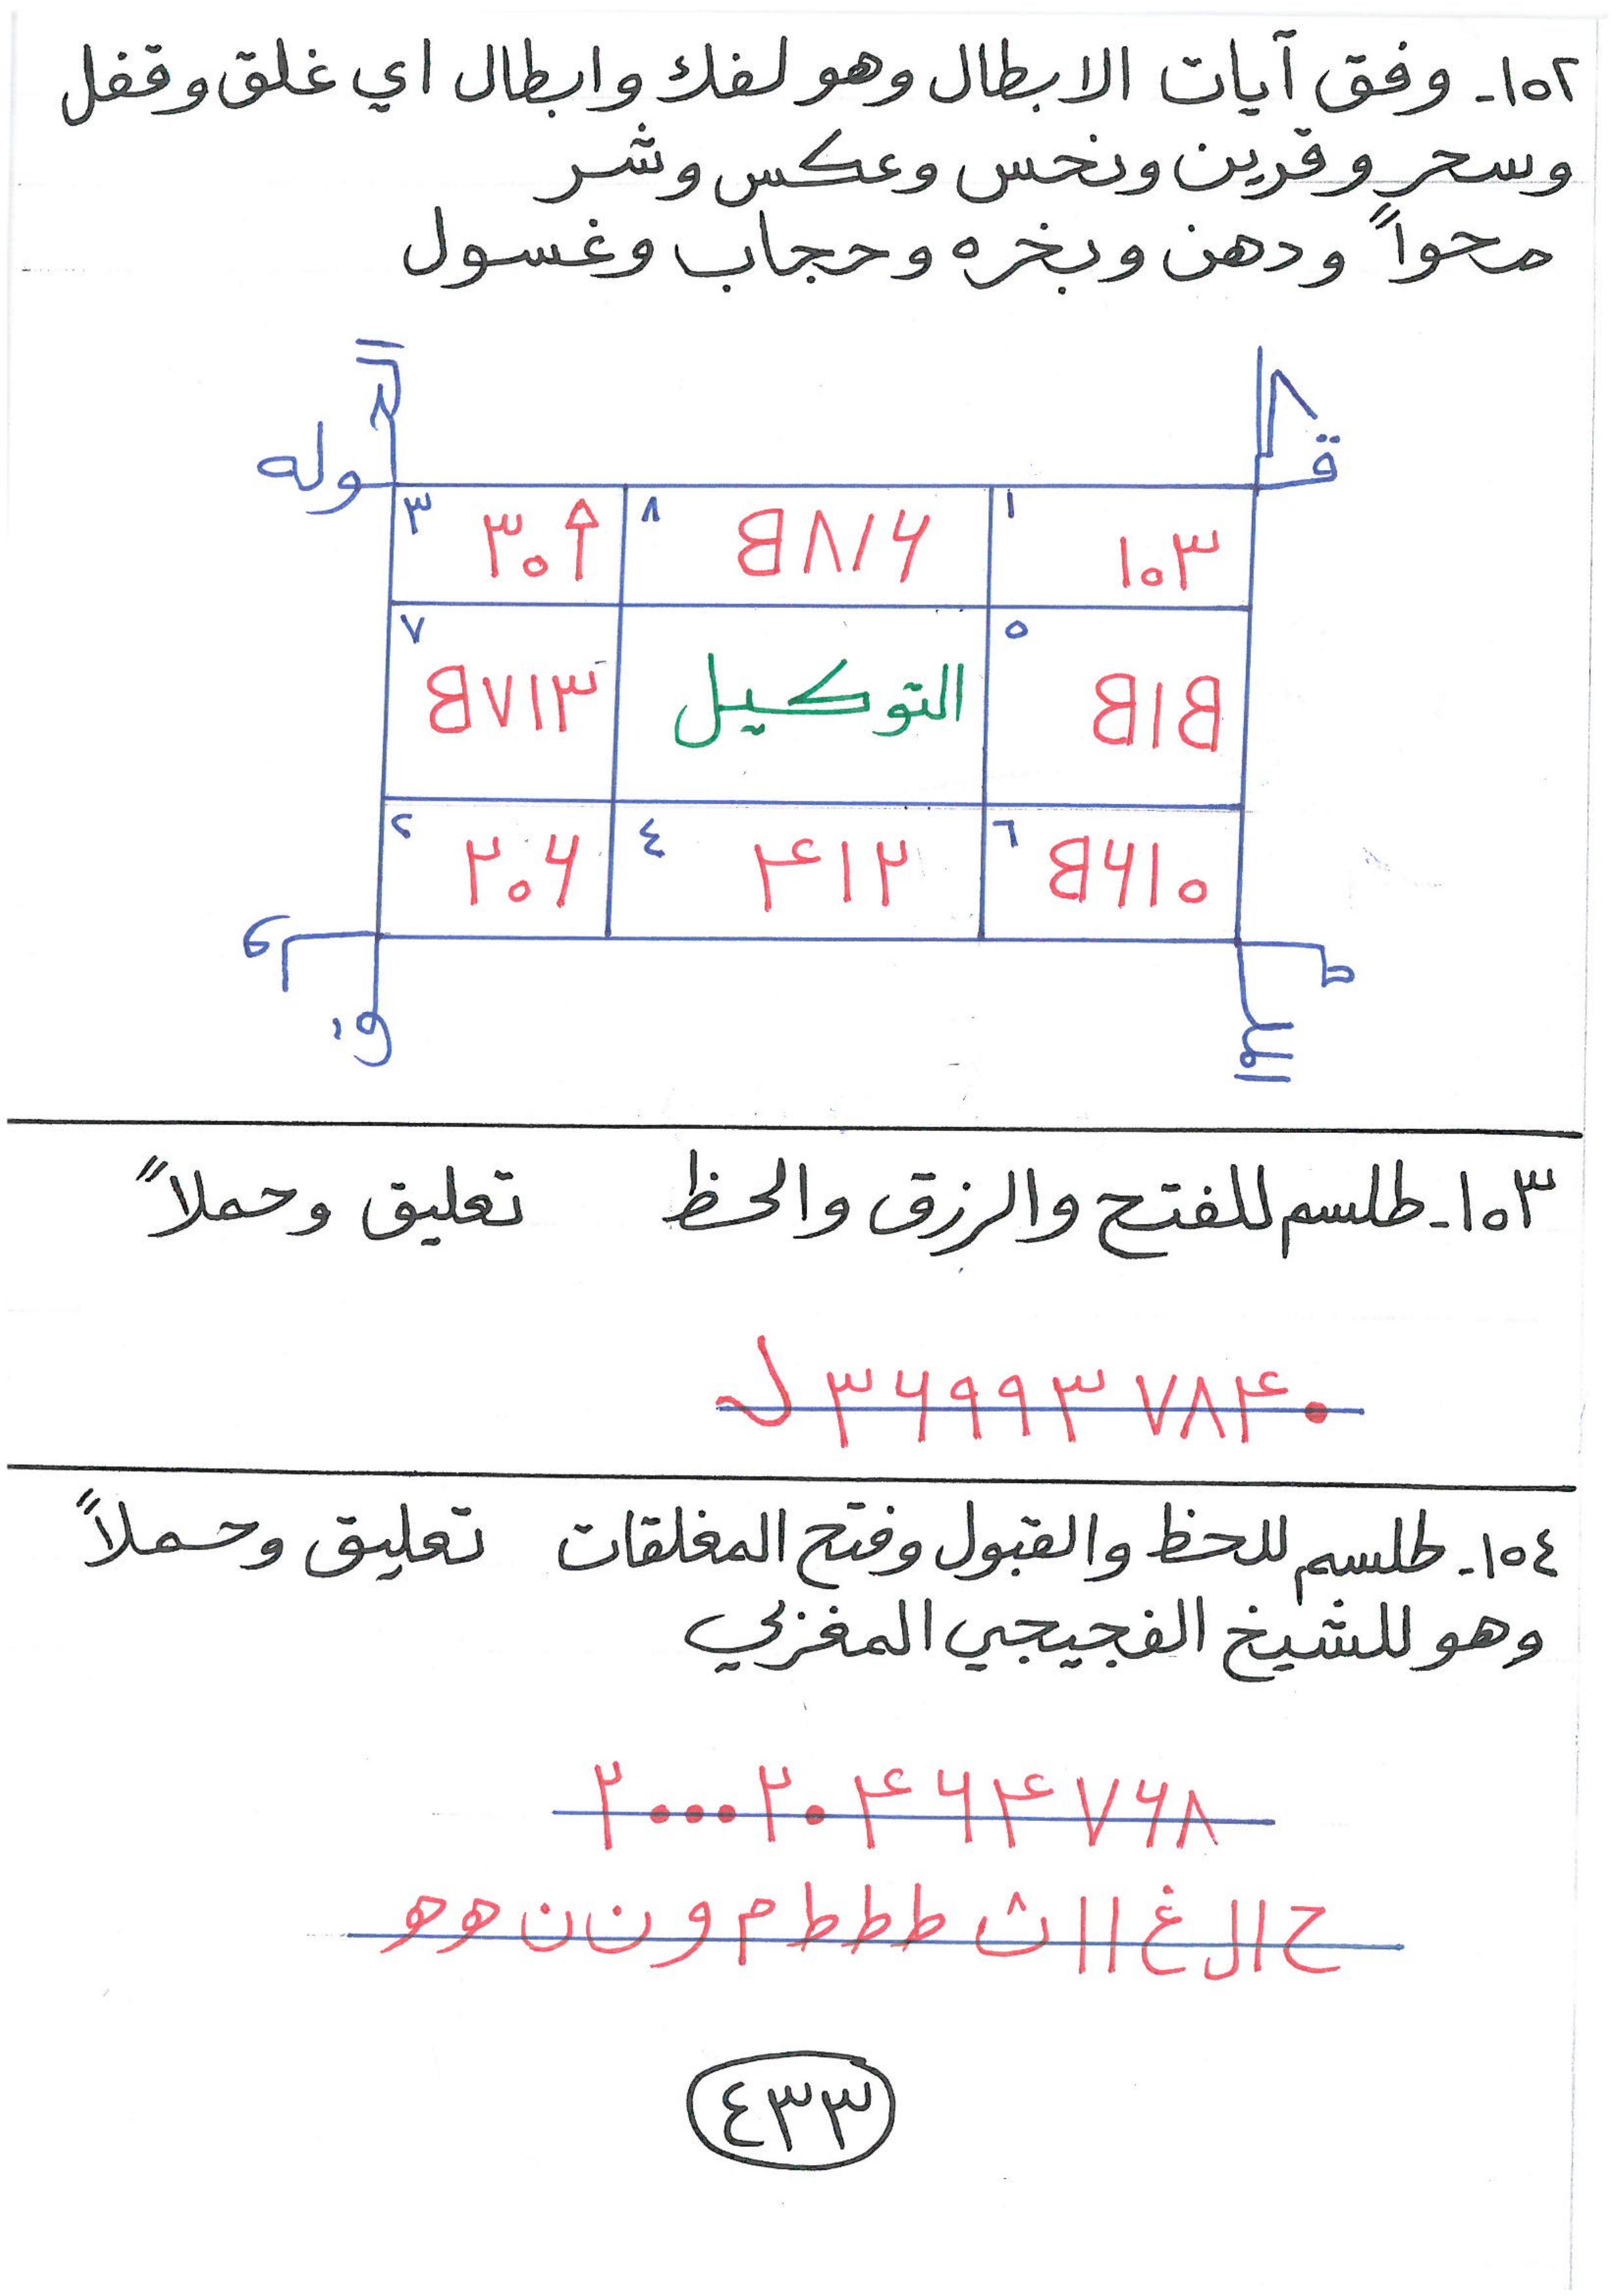 ١٥٢- وفق آيات الابطال وهو لفك وابطال اي غلق وقفل
وسحر وقرين ونحس وعكس وشر
محواً ودهن وبخره وحجاب وغسول
قوله
١ ١٠٣
٨ B٨١٦
٣ ٣٠
٥ B١B
التوكيل
٧ B٧١٣
٦ B٦١٠
٤ ۴١٢
٢ ٢٠٦
١٠٣- طلسم للفتح والرزق والحظ تعليق وحملاً
ل ٣٦٩٩٣٧٨۴٠
١٥٤- طلسم للحظ والقبول وفتح المغلقات تعليق وحملاً
وهو للشيخ الفجيجي المغربي
٢٠٠٠٢٠۴٦۴٧٦٨
ح ا ل غ ا ا ث ط ط ط م و ن ن ه ه
٤٣٣